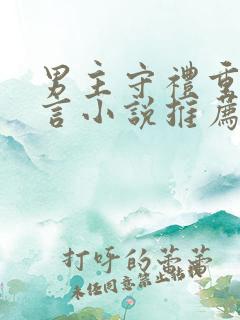 男主守禮重
言小說推薦
打呼的蕾蕾
未经同意禁止转载